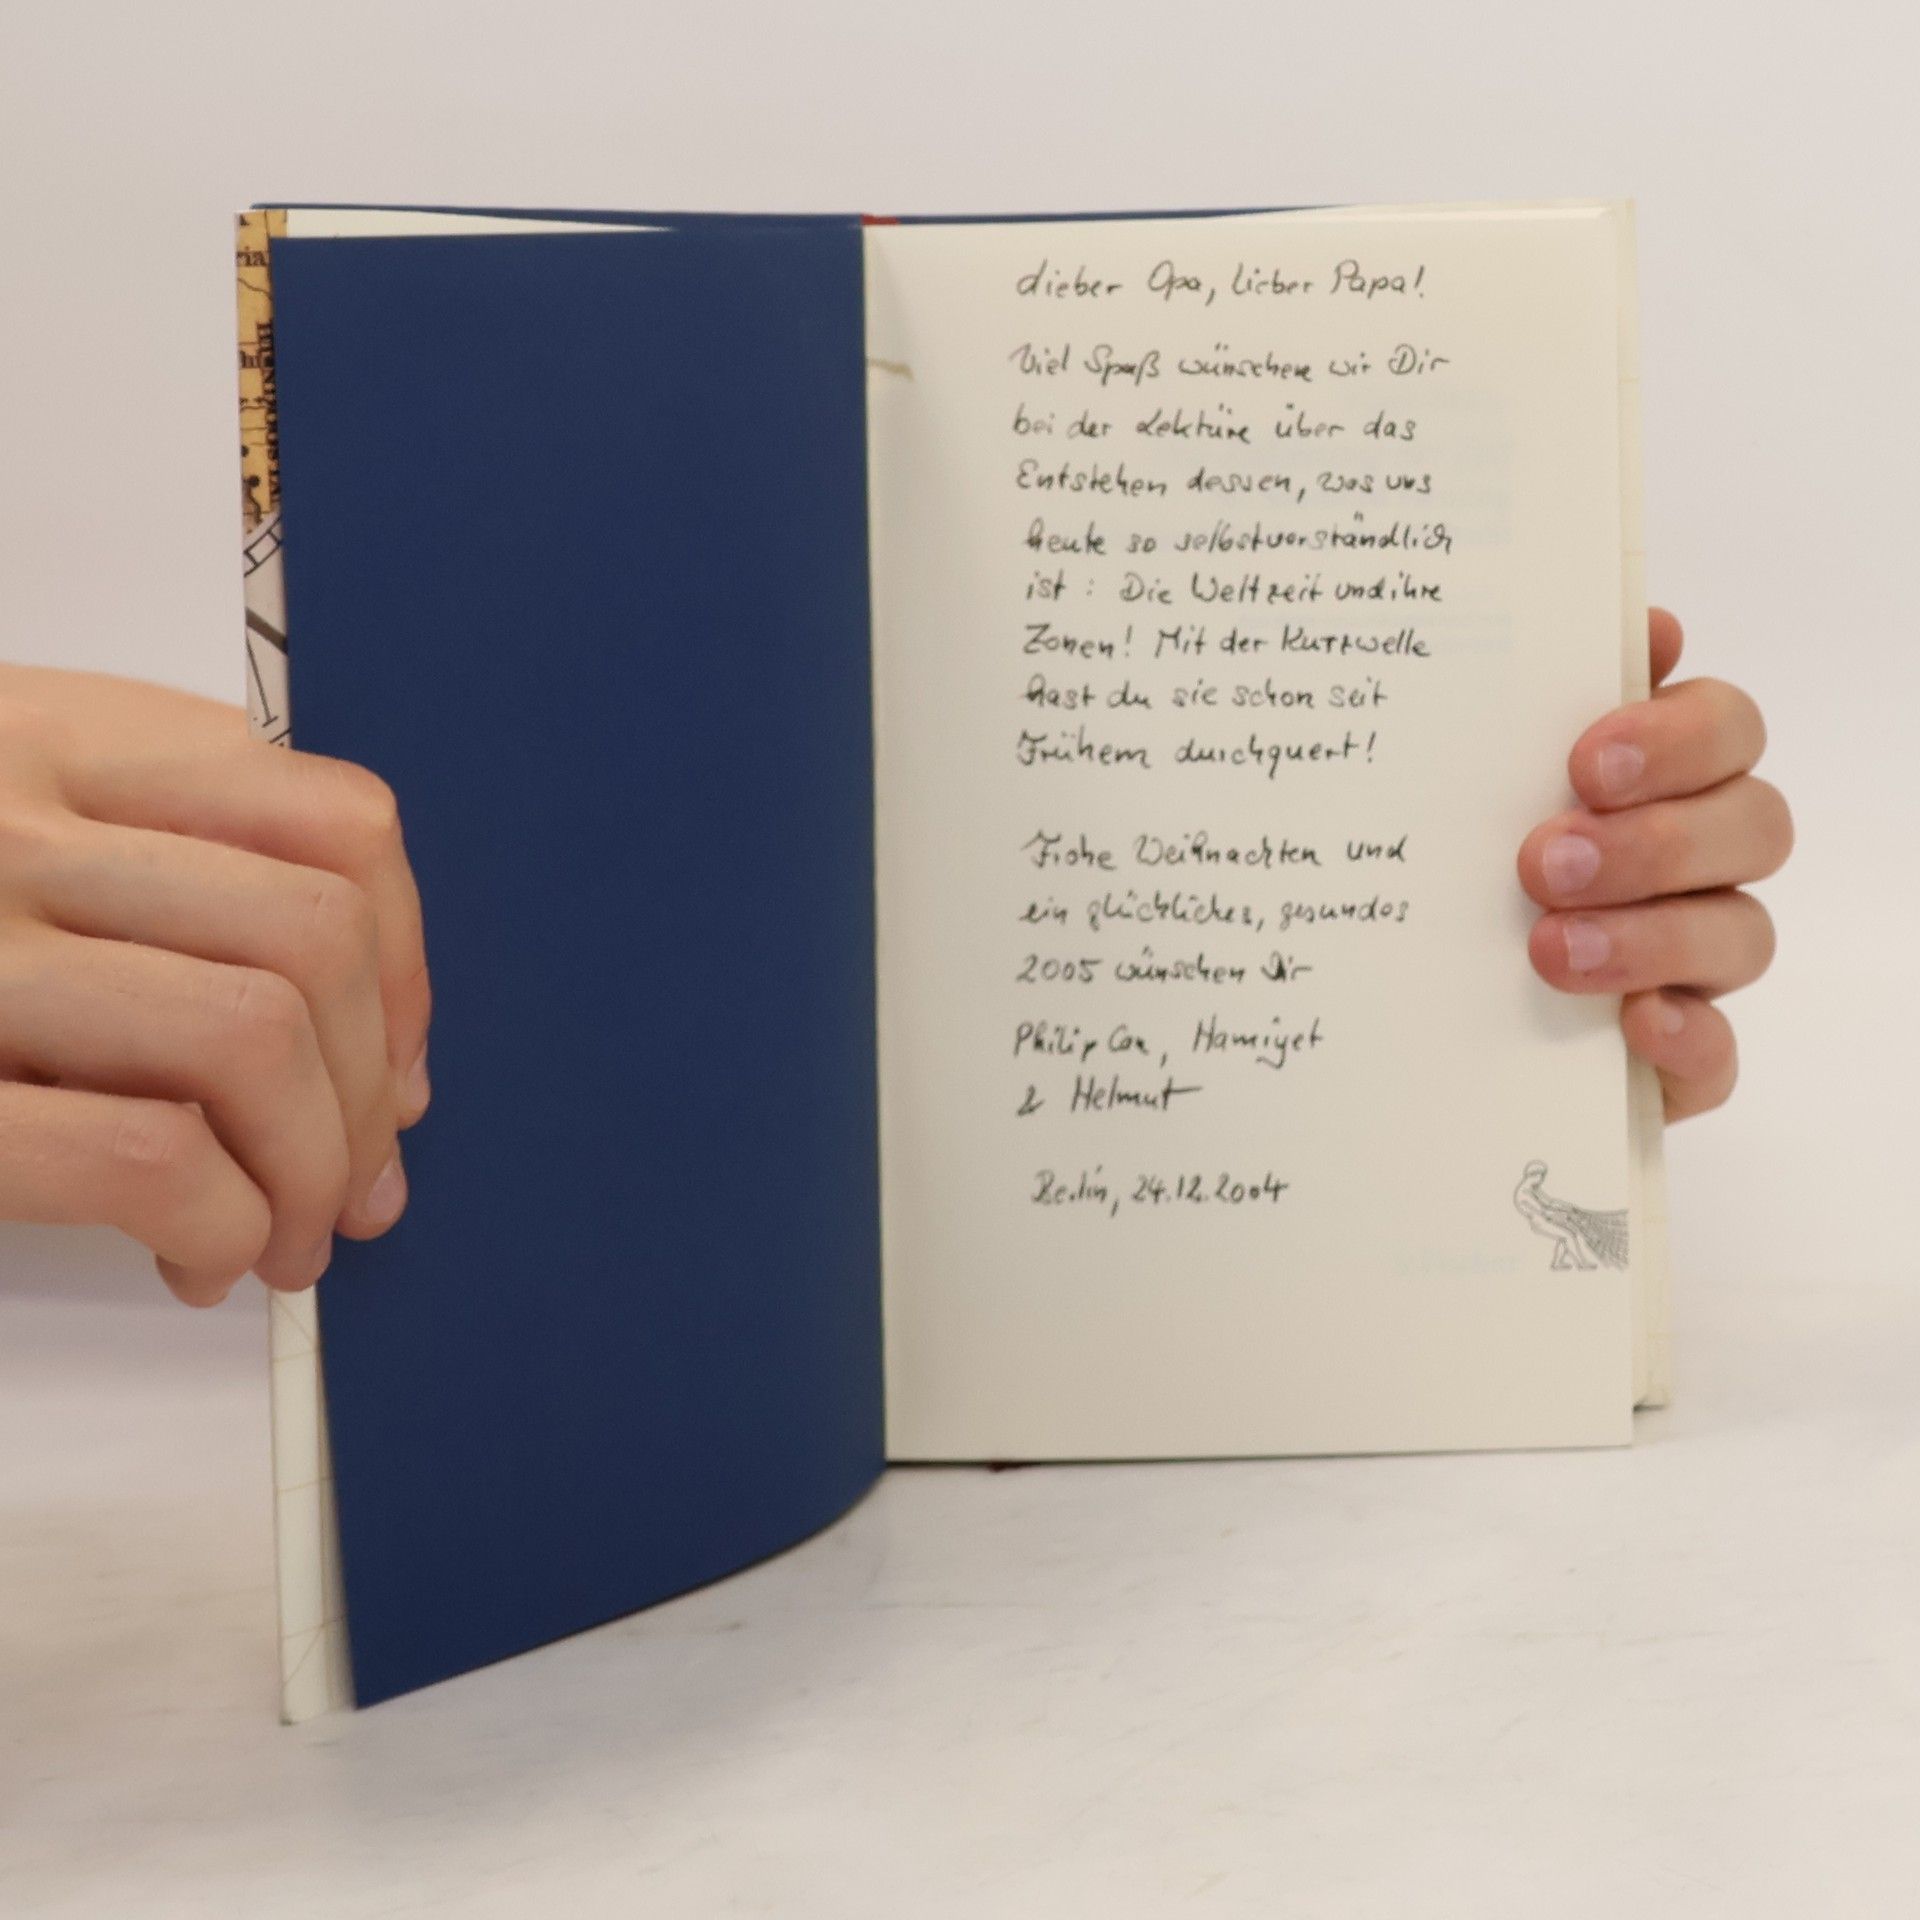 Lieber Opa, lieber Papa!
Viel Spaß wünschen wir Dir
bei der Lektüre über das
Entstehen dessen, was uns
heute so selbstverständlich
ist : Die Weltzeit und ihre
Zonen! Mit der Kurzwelle
hast du sie schon seit
Frühem durchquert!
Frohe Weihnachten und
ein glückliches, gesundes
2005 wünschen Dir
Philip Can, Hamiyet
& Helmut
Berlin, 24.12.2004